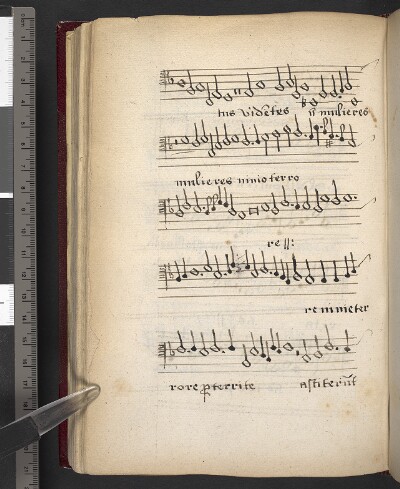 tus videtes ij mulieres
mulieres nimio terro
re ij:
re nimieter
rore ꝑterrite astiterūt